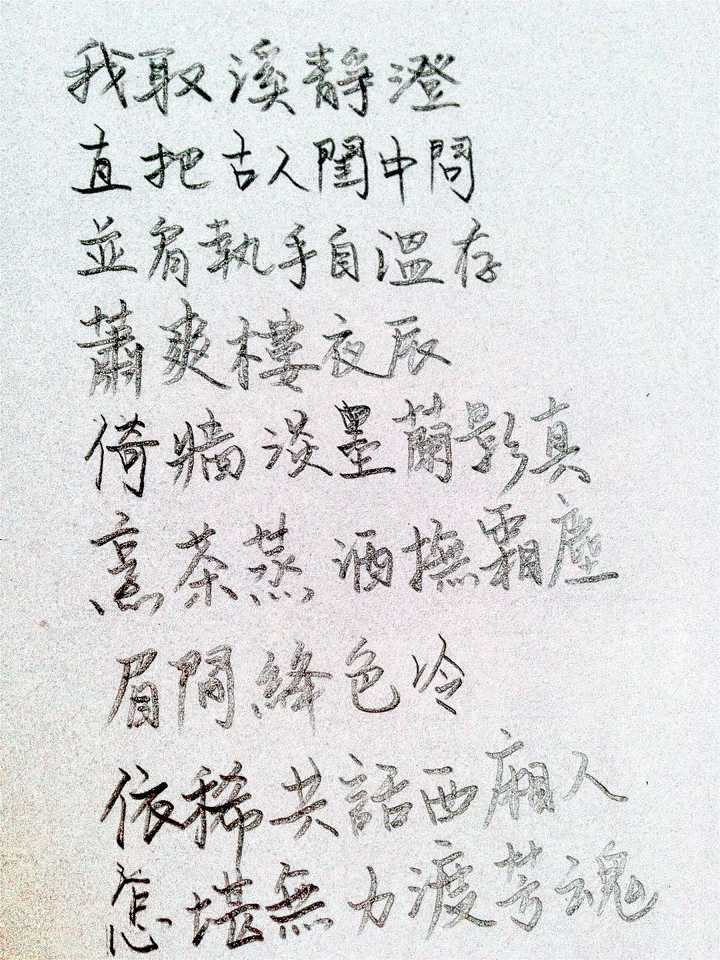 我取溪靜澄
直把古人閨中問
並肩執手自溫存
蕭爽樓夜辰
倚牆淡墨蘭影真
烹茶蒸酒撫霜塵
眉間絳色冷
依稀共話西廂人
怎堪無力渡芳魂